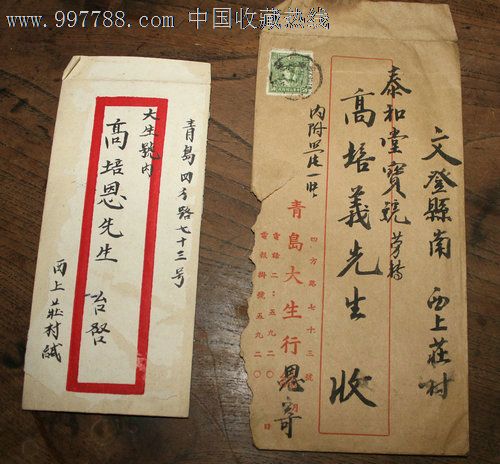 www.997788.com 中国收藏热线
青島四方路七十三号
大生號內
高培恩先生 台啓
西上莊村緘
文登縣南 西上莊村
泰和堂寶號
高培義先生 收
內附照片一帋
四方路七十三號
青島大生行
恩寄
電話二·五九二〇
電報掛號五九二〇